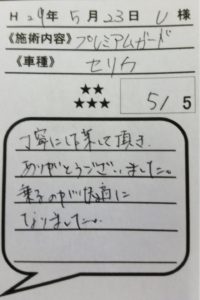 H29年5月23日 U 様
《施術内容》プレミアムガード
《車種》 セリカ
★★
★★★
5/5
丁寧に作業して頂き、
ありがとうございました。
乗るのが快適に
なりました。